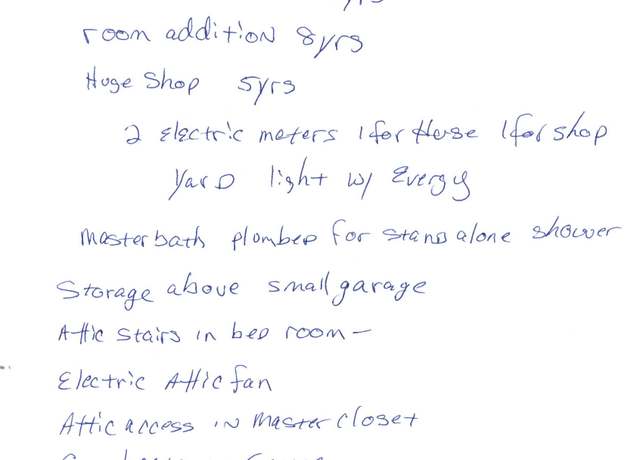 room addition 8yrs
Huge Shop 5yrs
2 Electric meters 1 for House 1 for shop
Yard light w/ Evergy
Master bath plumbed for stand alone shower
Storage above small garage
Attic stairs in bed room –
Electric Attic fan
Attic access in master closet